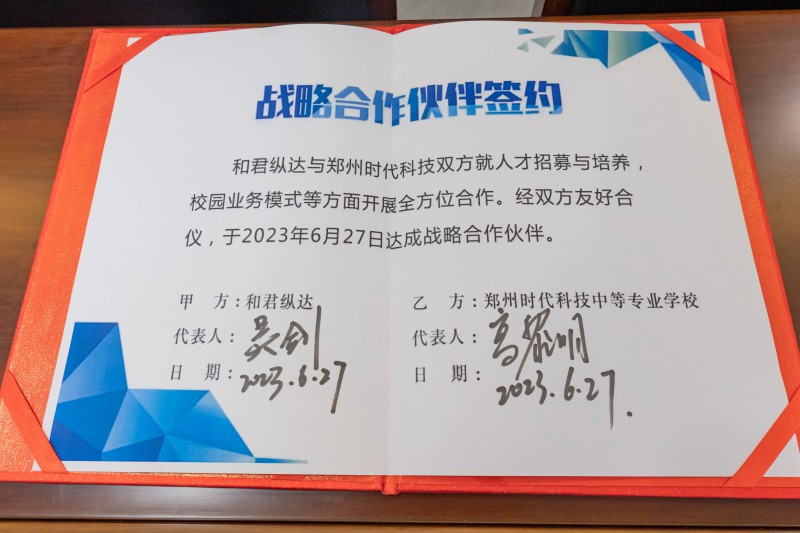 战略合作伙伴签约
和君纵达与郑州时代科技双方就人才招募与培养，
校园业务模式等方面开展全方位合作。经双方友好合
仪，于2023年6月27日达成战略合作伙伴。
甲 方：和君纵达
乙 方：郑州时代科技中等专业学校
代表人：吴剑
代表人：高
明
日 期：2023.6.27
日 期：2023.6.27.